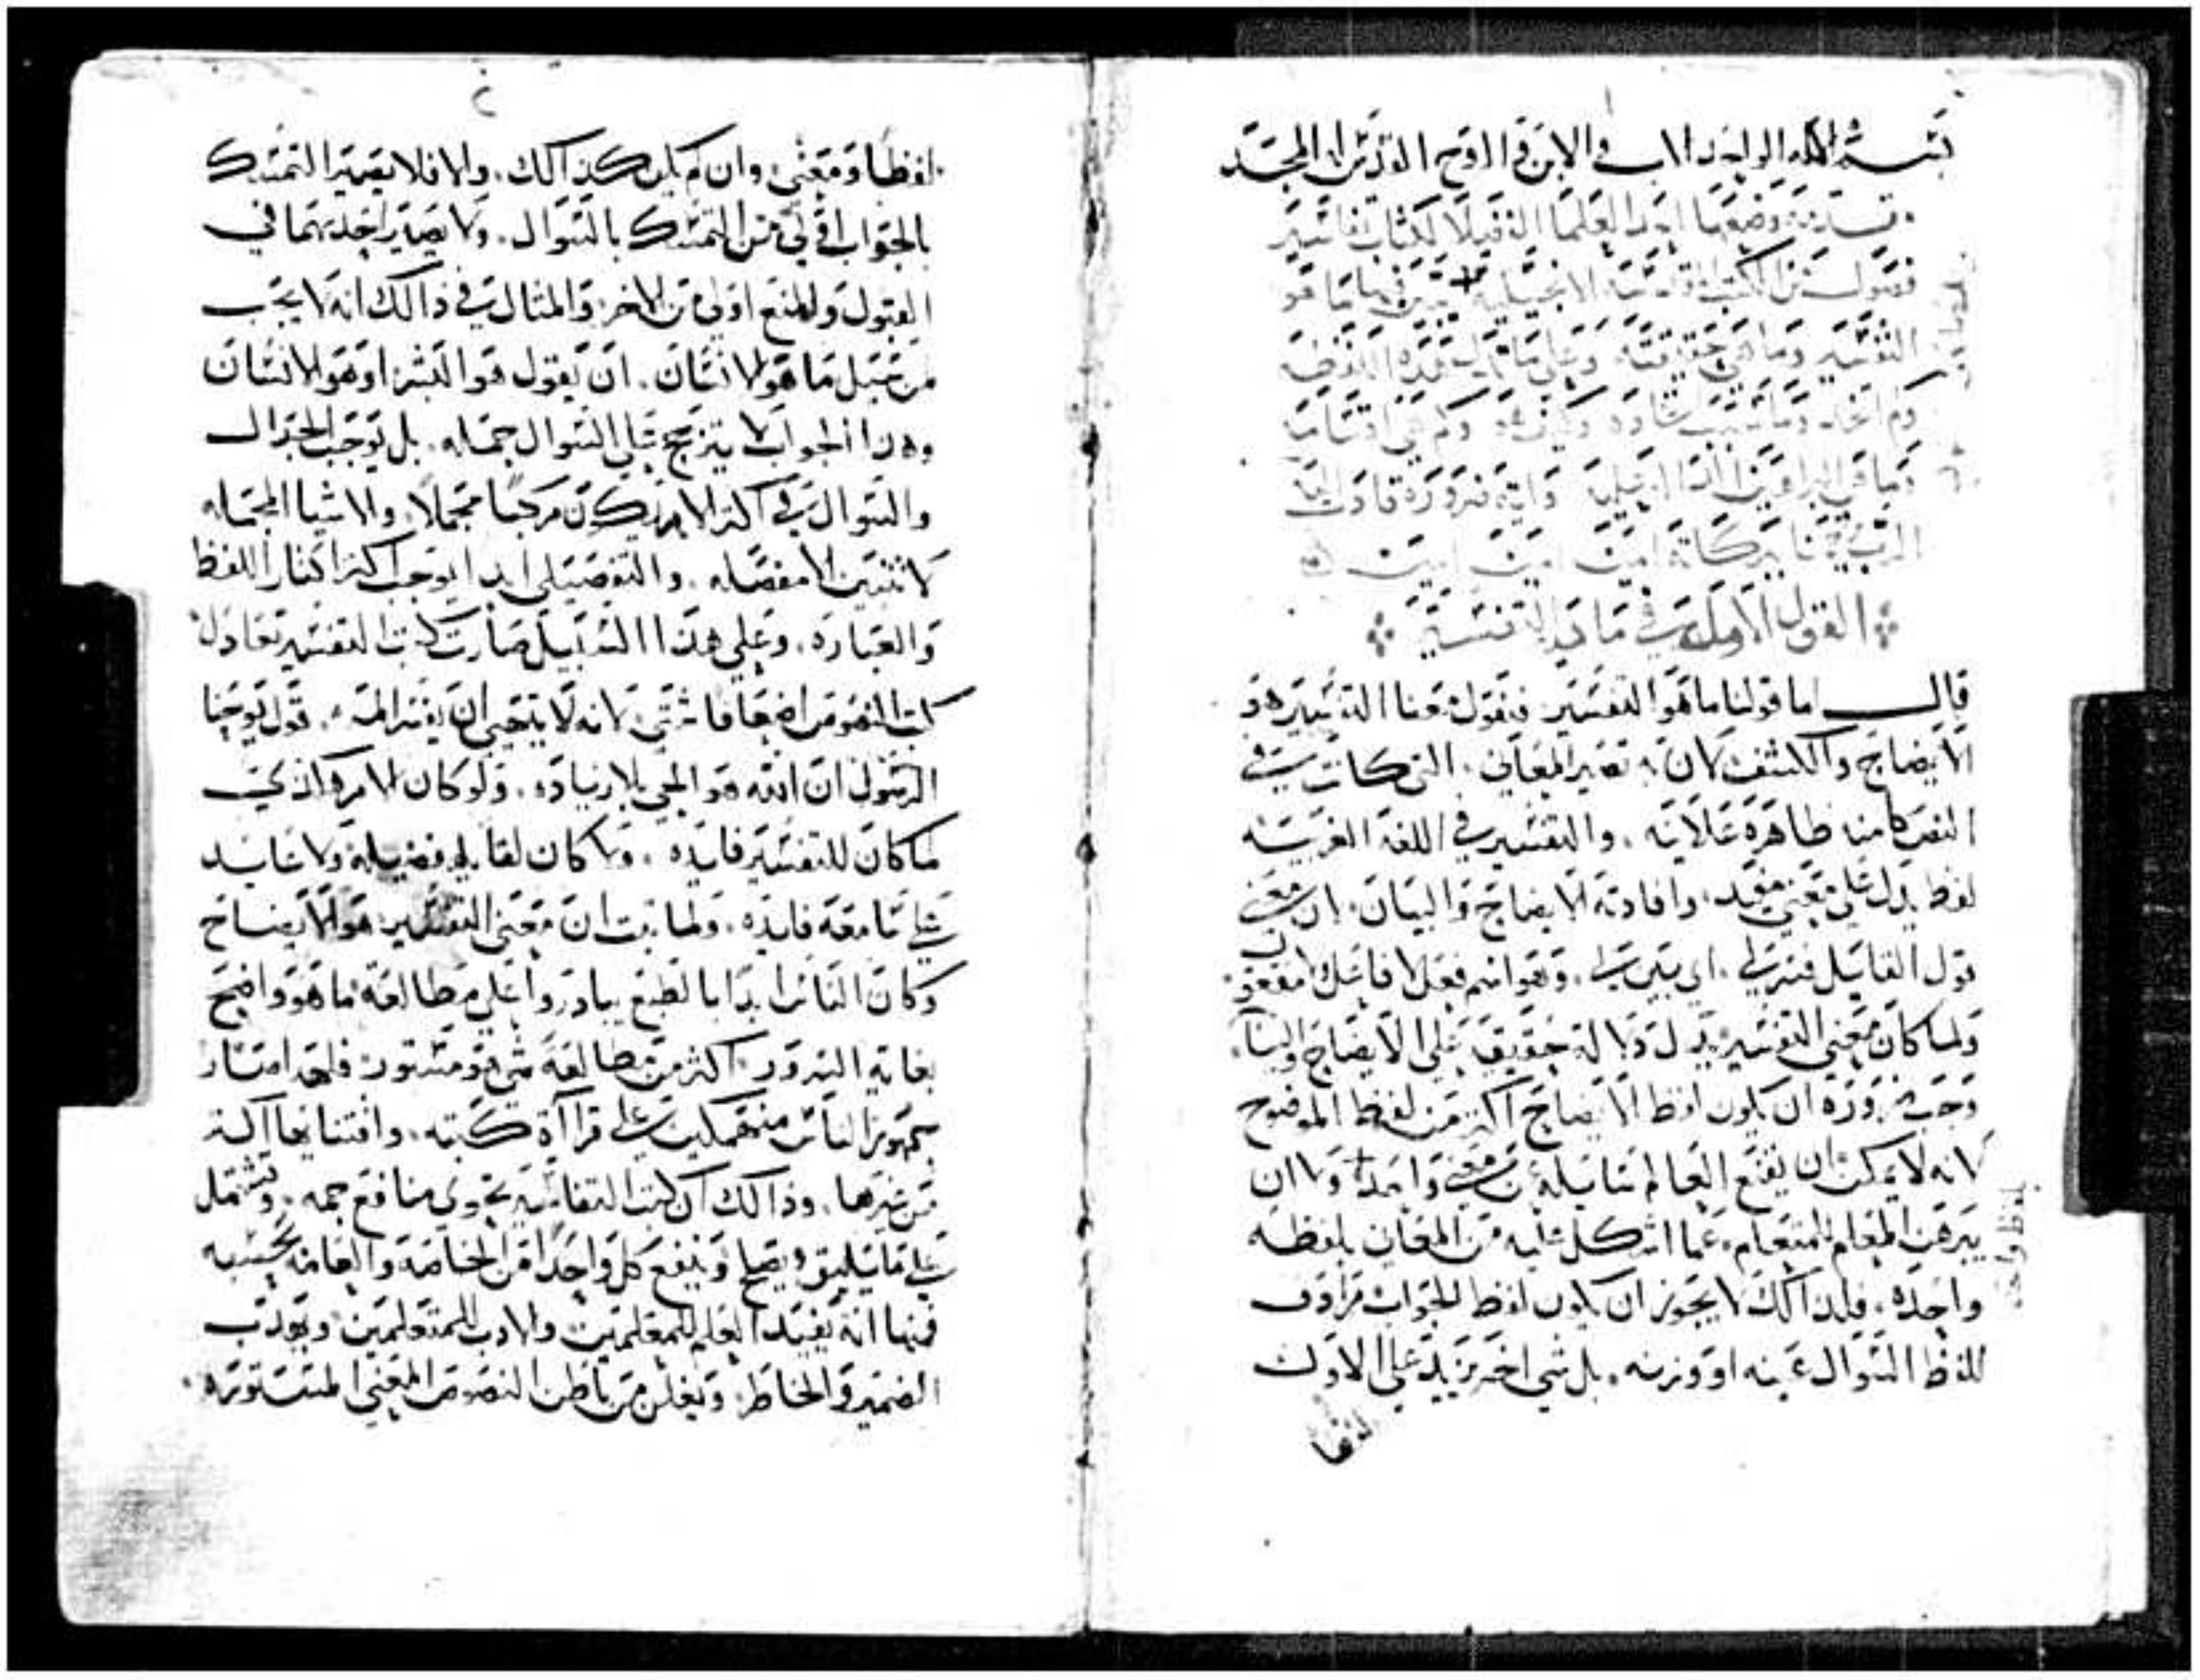 بسم الله الواحد الاب والابن والروح القدس المجد
مقدمة وضعها احد العلما الفضلا لكتاب تفاسير
فصول من الكتب المقدسه الانجيليه يبين فيها ما هو
التفسير وما هي حقيقته وعلي ماذا تدل هذه اللفظه
وكم انحا وما سبب وكم هي اقسامه
وما هي البراهين
الرب بركاته امين امين امين
القول الاول في ما هو التفسير
قال اما قولنا ما هو التفسير فنقول معنا التفسير هو
الايضاح والكشف لان به تصير المعاني التي كانت في
النص كامنه ظاهرة علانيه. والتفسير في اللغة العربيه
لفظ يدل علي معني مفيد. وافادته الايضاح والبيان. لان معني
قول القايل فسر لي. اي بين لي. وهو اسم فعل لا فاعل ولا مفعول
ولما كان معني التفسير يدل دلالة حقيقيه علي الايضاح والبيان
وجب ضرورة ان يكون لفظ الايضاح اكثر من لفظ الموضوح
لانه لا يمكن ان يقنع العالم سايله عن معني واحدة ولا ان
يبرهن المعلم للمتعلم. عما اشكل عليه من المعاني بلفظه
واحده. فلذالك لا يجوز ان يكون لفظ الجواب مرادف
للفظ السوال عينه او وزنه. بل شي اخر يزيد علي الاول
لفظا
لفظا ومعني وان لم يكن كذالك. والا فلا يصير التمسك
بالجواب اولي من التمسك بالسوال. ولا يصير احدهما في
القبول والمنع اولي من الاخر والمثال في ذالك انه لا يجب
من سيل ما هو الانسان. ان يقول هو البشر او هو الانسان
وهذا الجواب لا يترجح علي السوال جمله. بل يوجب الجدال
والسوال في اكثر الامر يكون مركبا مجملا. والاشيا المجمله
لا تتبين الا مفصله. والتفصيل ابدا يوجب اكثر اكثار اللفظ
والعباره. وعلي هذا السبيل صارت كتب التفسير تعادل
كتب النصوص اضعافا شتي. لانه لا يتجي ان يفسر المر. قول يوحنا
الرسول ان الله هو المحي بلا زياده. ولو كان الامر هاكذي
لما كان للتفسير فايده. ولا كان لقايله فضيله ولا عايد
علي سامعه فايده. ولما ثبت ان معني التفسير هو الايضاح
وكان الناس ابدا بالطبع يبادروا علي مطالعة ما هو واضح
بغاية السرور. اكثر من مطالعة شي هو مستور. فلهذا صار
جمهور الناس منهمكين علي قراآة كتبه. واقتنايها اكثر
من غيرها. وذالك ان كتب التفاسير تحوي منافع جمه. وتشتمل
علي ما يليق ويصلح وينفع كل واحدا من الخاصة والعامه بحسبه
فمنها انه يفيد العلم للمعلمين والادب للمتعلمين ويهذب
الضمير والخاطر. ويعلن من باطن النصوص المعني المستتوره.